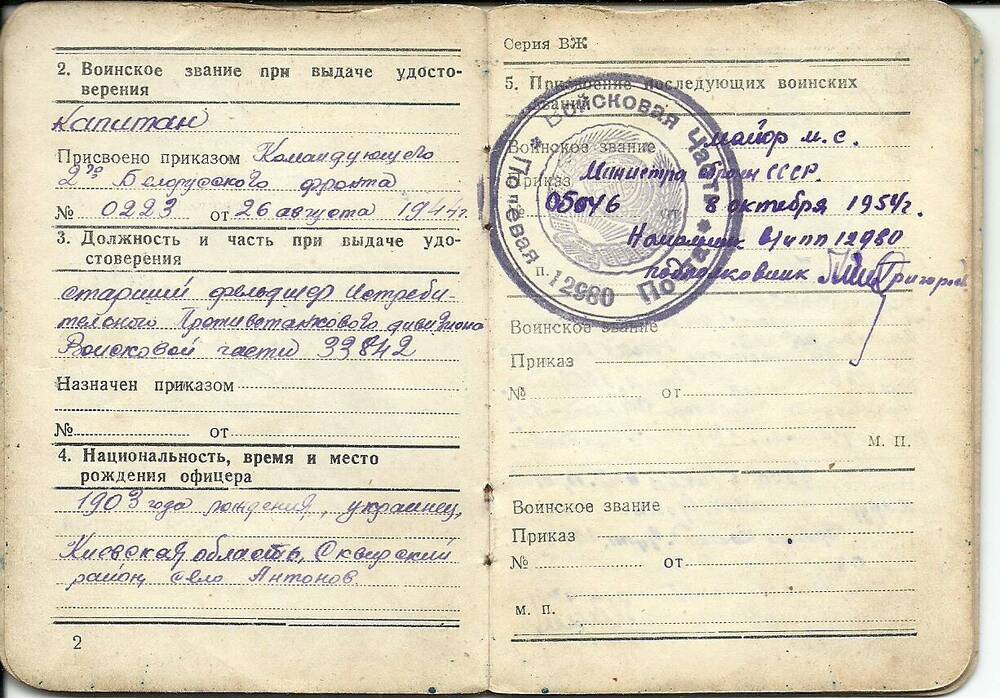 2. Воинское звание при выдаче удосто-
верения
Капитан
Присвоено приказом Командующего
2го Белорусского фронта
№ 0223 от 26 августа 1944г.
3. Должность и часть при выдаче удо-
стоверения
старший фельдшер Истреби-
тельного Противотанкового дивизиона
Войсковой части 33842
Назначен приказом
№ от
4. Национальность, время и место
рождения офицера
1903 года рождения, украинец,
Киевская область, Сквирский
район, село Антонов
2
Серия ВЖ
5. Присвоение последующих воинских
званий
Воинское звание майор м.с.
Приказ Министра Оброны СССР.
№ 05046 от 8 октября 1954г.
Начальник в/ч пп 12980
подполковник
Войсковая Часть * Полевая Почта *
п. 12980
Воинское звание
Приказ
№ от
М. П.
Воинское звание
Приказ
№ от
м. п.